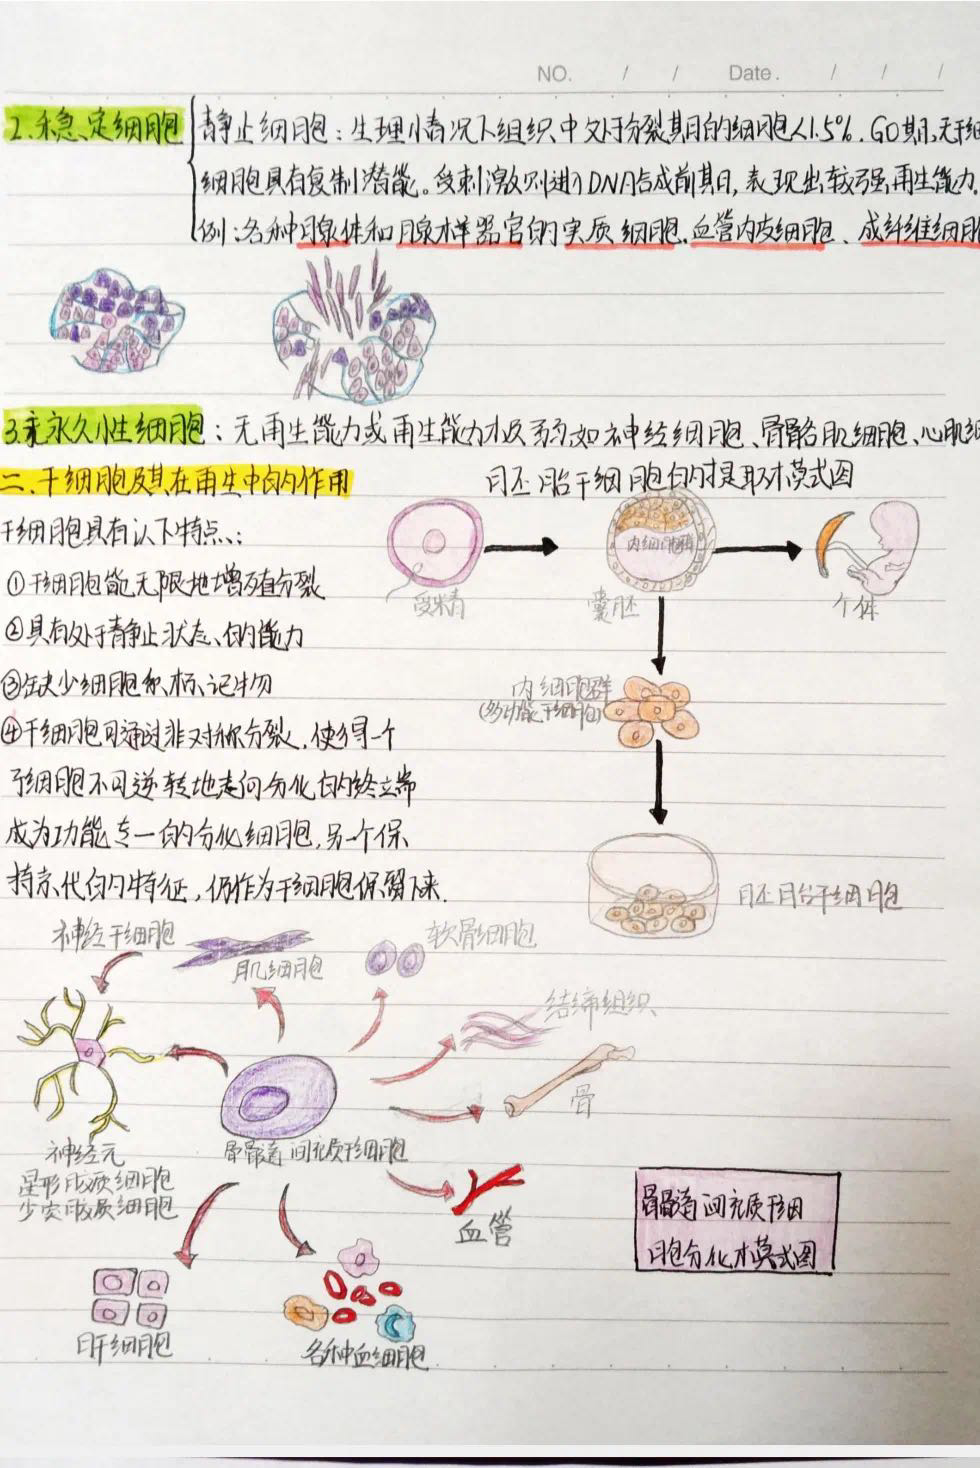 NO. / / Date. / / /
2.稳定细胞
静止细胞：生理情况下组织中处于分裂期的细胞<1.5%. G0期,无干细
细胞具有复制潜能。受刺激则进入DNA合成前期，表现出较强再生能力.
例：各种腺体和腺样器官的实质细胞.血管内皮细胞、成纤维细胞
3.永久性细胞：无再生能力或再生能力极弱如神经细胞、骨骼肌细胞、心肌细
二.干细胞及其在再生中的作用
胚胎干细胞的提取模式图
干细胞具有以下特点：
①干细胞能无限地增殖分裂
②具有处于静止状态的能力
③缺少细胞系标记物
④干细胞可通过非对称分裂，使得一个
子细胞不可逆转地走向分化的终端
成为功能专一的分化细胞，另一个保
持亲代的特征，仍作为干细胞保留下来.
受精
内细胞群
囊胚
个体
内细胞群
(多功能干细胞)
胚胎干细胞
神经干细胞
肌细胞
软骨细胞
结缔组织
骨
骨髓间充质干细胞
神经元
星形胶质细胞
少突胶质细胞
血管
肝细胞
各种血细胞
骨髓间充质干细
胞分化模式图